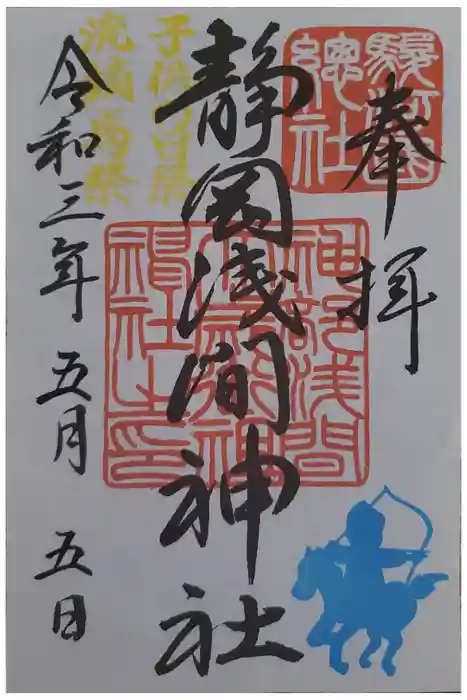 奉拝
駿河國
總社
静岡浅間神社
神部浅間
社之印
子供の日
流鏑馬祭
令和三年五月五日